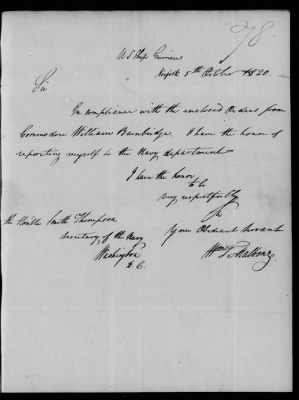 78.
U S Ship Guerriere
Norfolk 5th October 1820.
Sir
In compliance with the enclosed Orders from
Commodore William Bainbridge. I have the honor of
reporting myself to the Navy department
I have the honor
to be
very respectfully
Sir
Your Obedient Servant
Wm T Malbone
the Honble Smith Thompson
secretary of the Navy
Washington
D. C.